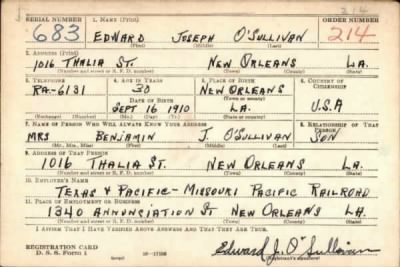 214
SERIAL NUMBER 1. NAME (Print) ORDER NUMBER
683 EDWARD JOSEPH O'SULLIVAN 214
(First) (Middle) (Last)
2. ADDRESS (Print)
1016 THALIA ST. NEW ORLEANS LA.
(Number and street or R. F. D. number) (Town) (County) (State)
3. TELEPHONE 4. AGE IN YEARS 5. PLACE OF BIRTH 6. COUNTRY OF CITIZENSHIP
RA-6131 30 NEW ORLEANS
DATE OF BIRTH (Town or county)
SEPT 16 1910 LA. U.S.A
(Exchange) (Number) (Mo.) (Day) (Yr.) (State or country)
7. NAME OF PERSON WHO WILL ALWAYS KNOW YOUR ADDRESS 8. RELATIONSHIP OF THAT PERSON
MRS BENJAMIN J. O'SULLIVAN SON
(Mr., Mrs., Miss) (First) (Middle) (Last)
9. ADDRESS OF THAT PERSON
1016 THALIA ST. NEW ORLEANS LA.
(Number and street or R. F. D. number) (Town) (County) (State)
10. EMPLOYER'S NAME
TEXAS & PACIFIC - MISSOURI PACIFIC RAILROAD
11. PLACE OF EMPLOYMENT OR BUSINESS
1340 ANNUNCIATION ST NEW ORLEANS LA.
(Number and street or R. F. D. number) (Town) (County) (State)
I AFFIRM THAT I HAVE VERIFIED ABOVE ANSWERS AND THAT THEY ARE TRUE.
REGISTRATION CARD
D. S. S. Form 1 Edward J. O'Sullivan
(Registrant's signature)